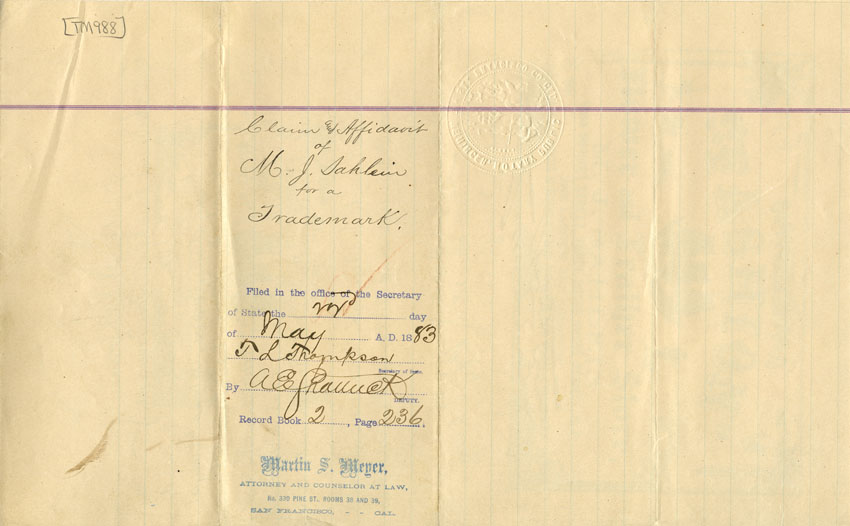 [TM988]
Claim & Affidavit
of
M. J. Sahlein
for a
Trademark.
Filed in the office of the Secretary
of State the day
of May A. D. 1883
T L Thompson
Secretary of State.
By A E
DEPUTY.
Record Book 2, Page 236.
Martin S. Meyer,
ATTORNEY AND COUNSELOR AT LAW,
No. 330 PINE ST. ROOMS 38 AND 39,
SAN FRANCISCO, - - CAL.